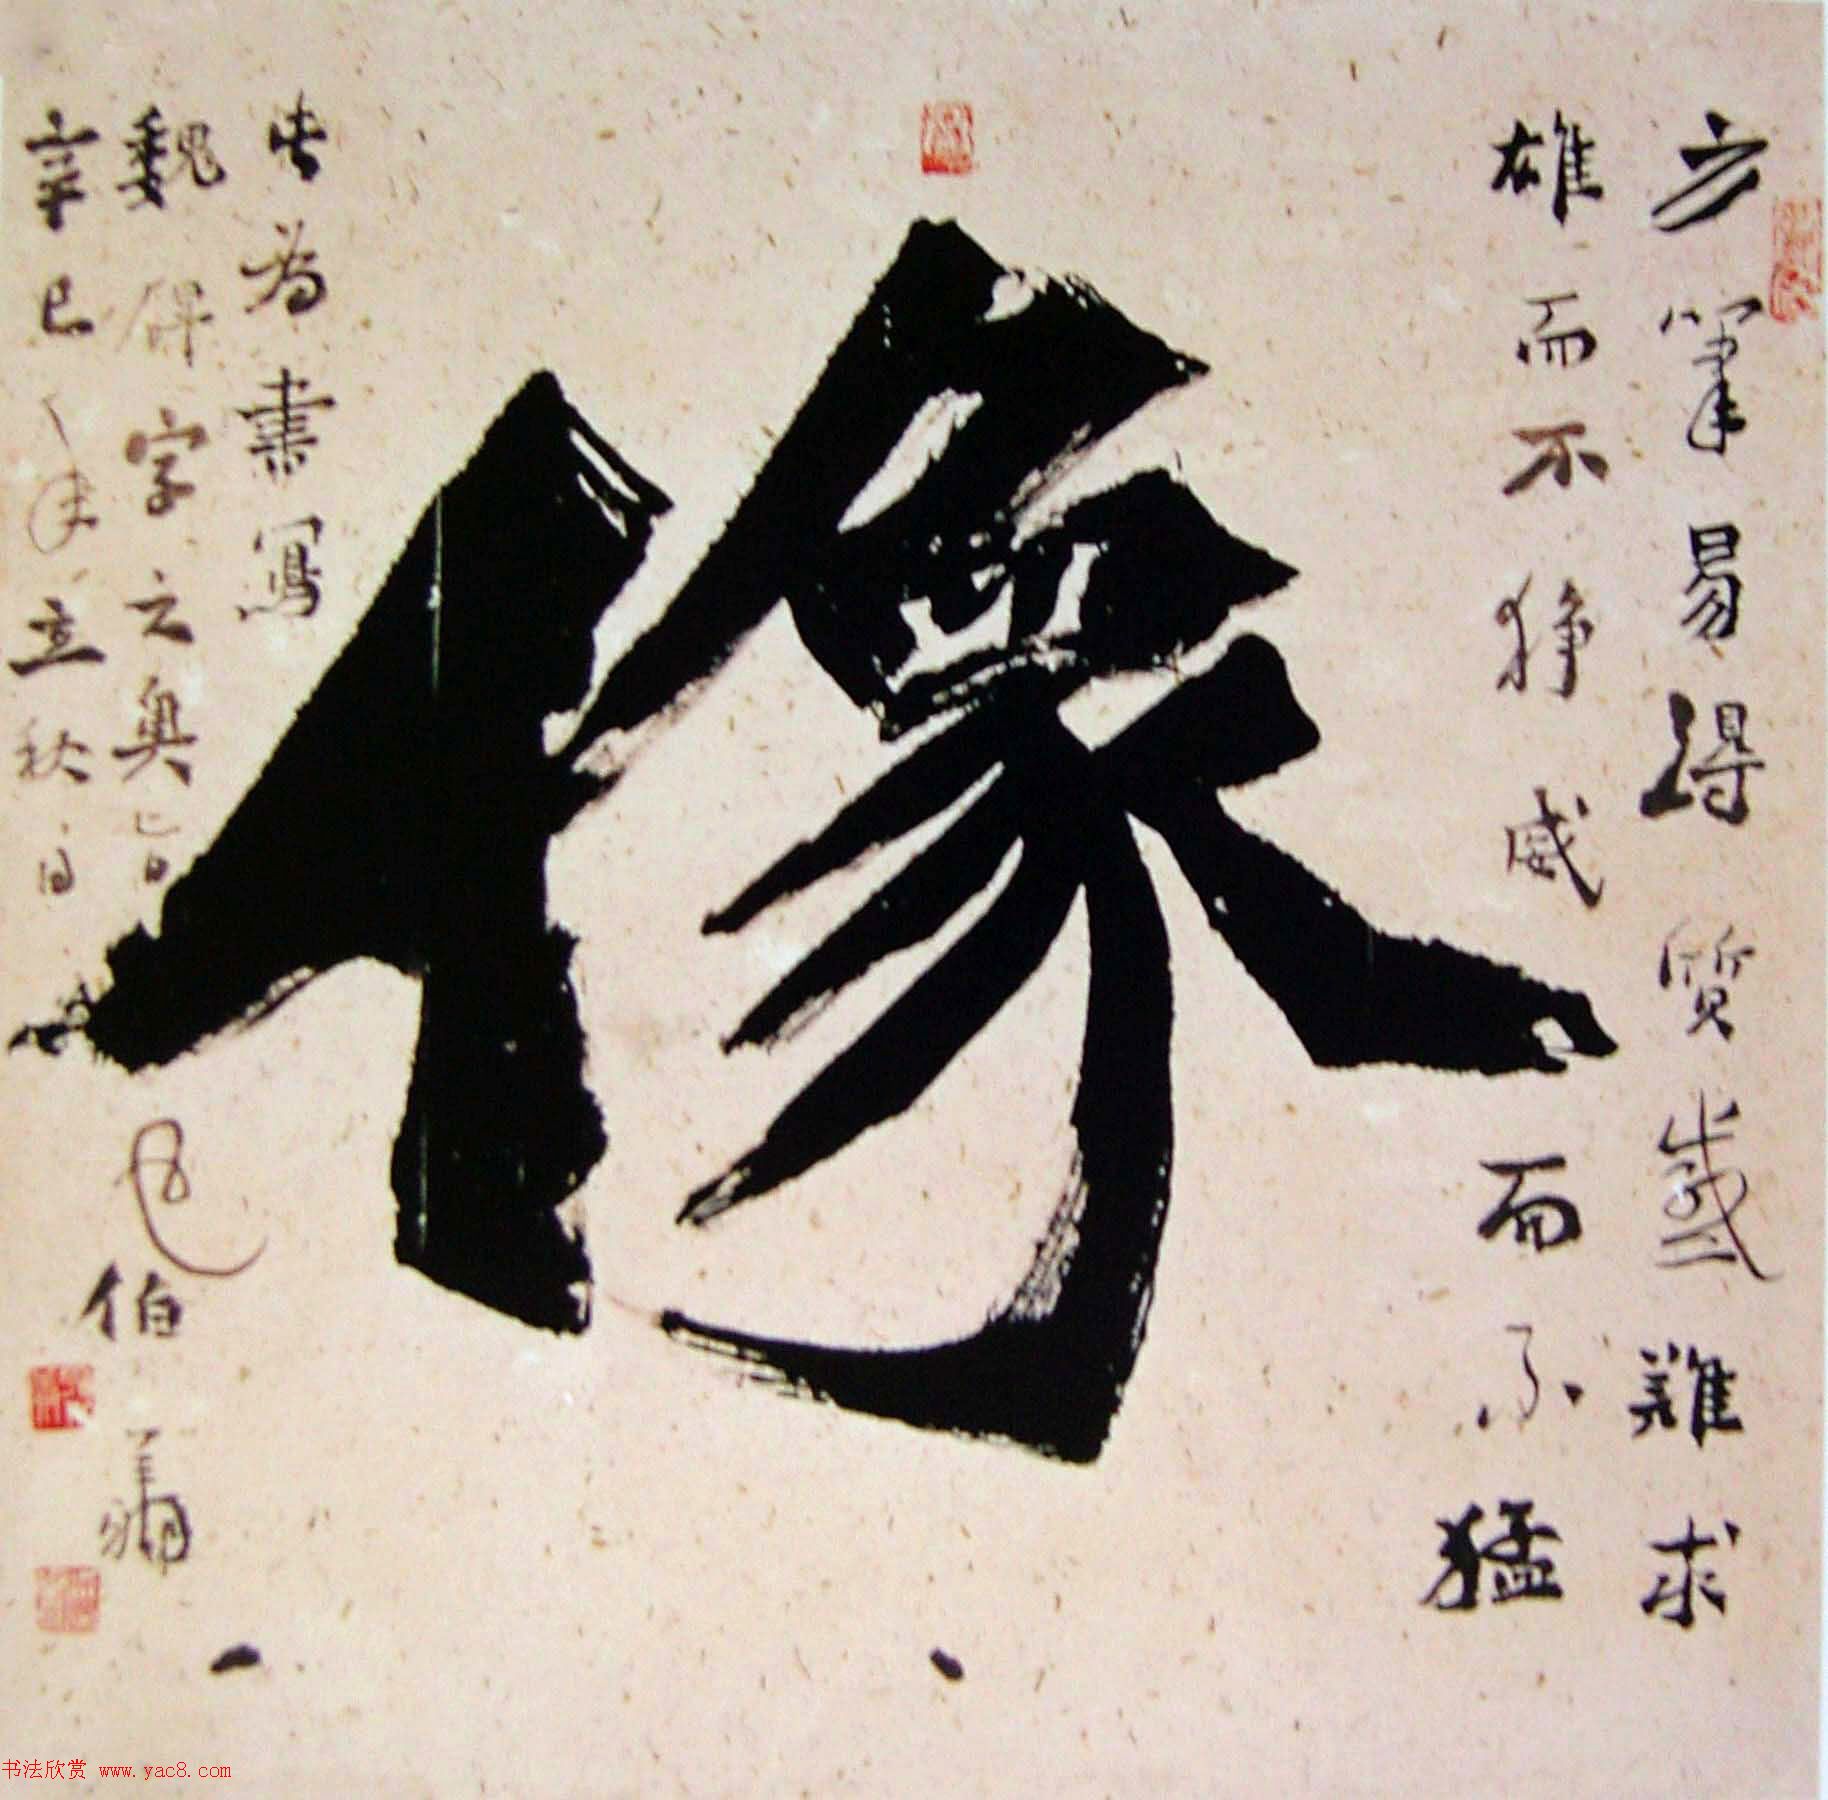 方筆易得質感難求
雄而不狰威而不猛
像
此為書寫
魏碑字之奥旨
辛巳年立秋日
范伯翥
书法欣赏 www.yac8.com